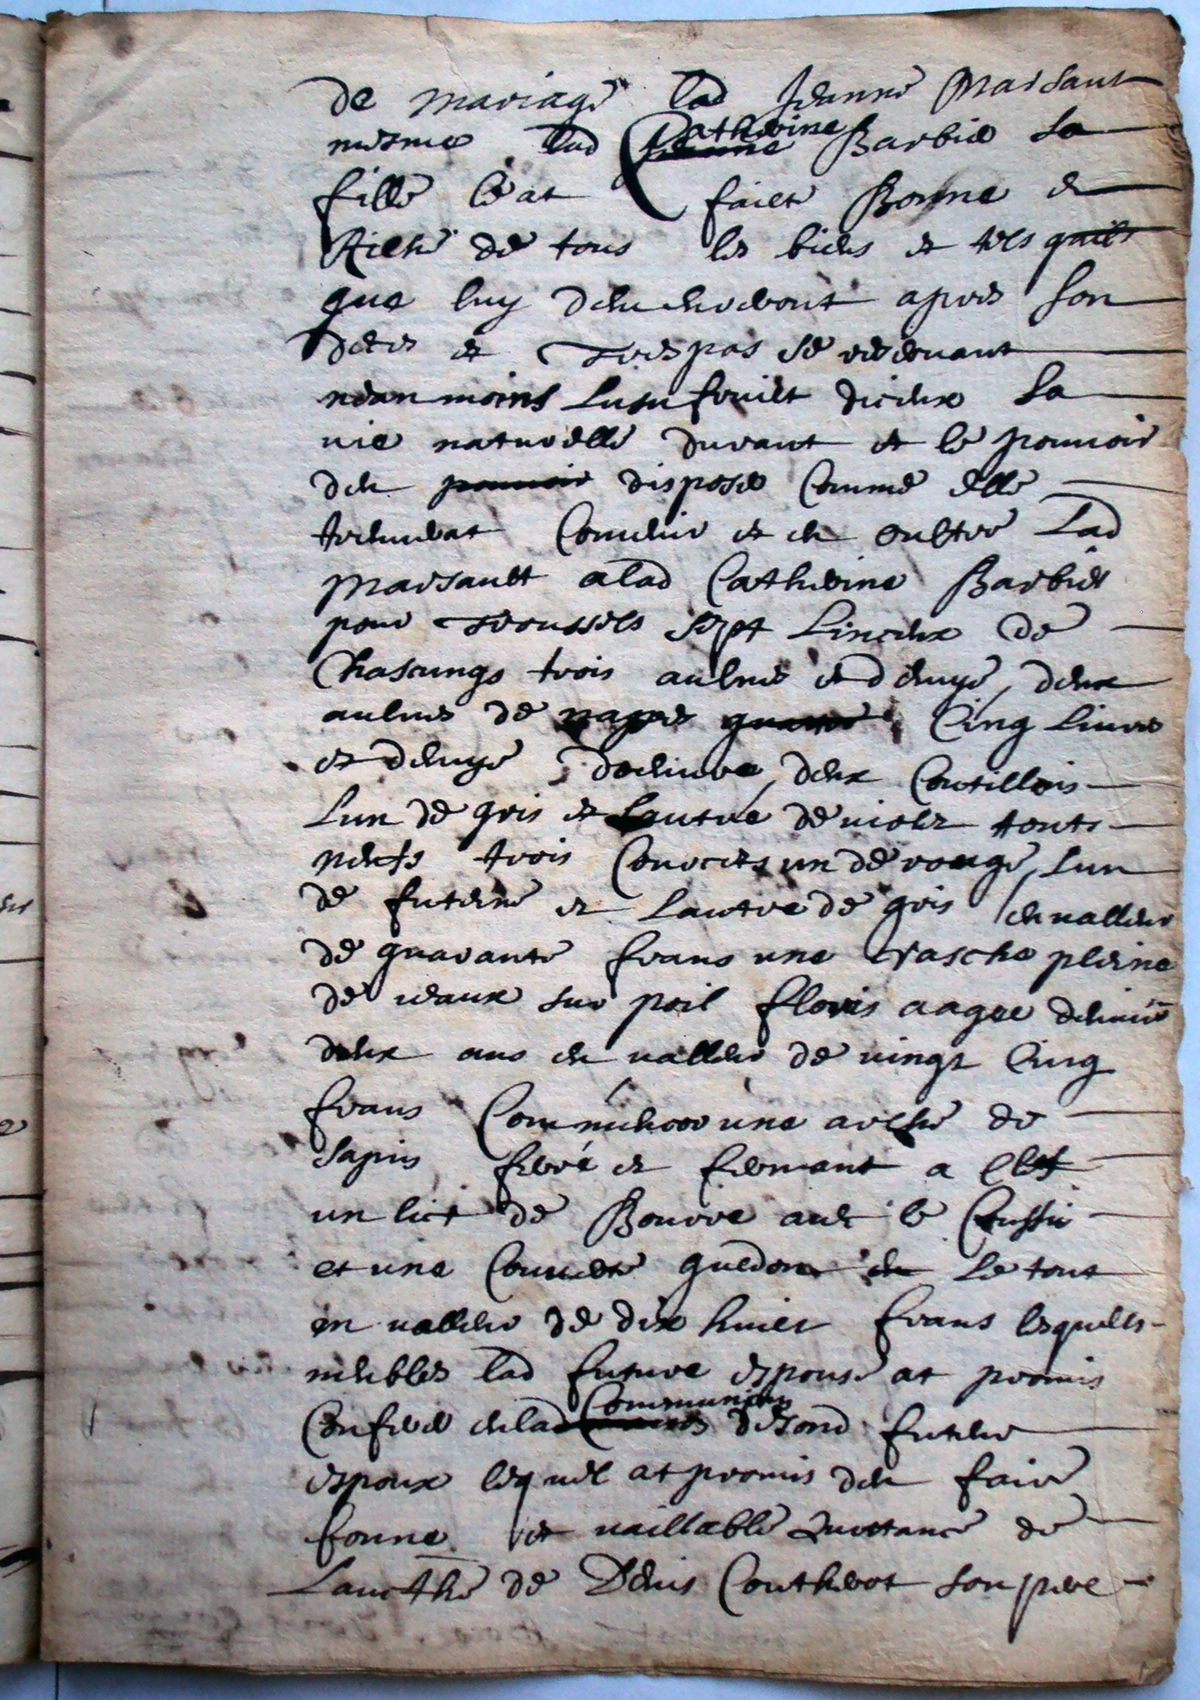 de mariage lad Jeanne Marsaut
mesme lad Catherine Barbier sa
fille l'at faict Bonne et
Riche de tous les biens et tels quils
que luy demeureront apres son
deces et Trespas se reservant
neanmoins lusufruict diceux sa
vie naturelle durant et le pouvoir
den pouvoir disposer comme elle
trouverat Convenir et en oultre Lad
Marsault a lad Catherine Barbier
pour Troussels sept Linceux de
Chascungs trois aulnes et demye, deux
aulnes de nappes quattre Cinq livres
et demye d'oeuvre, deux Coutillons
Lun de gris et Lautre de violz touts
neufs trois Corcets un de rouge, lun
de futeine et Lautre de gris en valleur
de quarante frans une Vasche pleine
de veaux sur poil floris aagee denviro
deux ans en valleur de vingt Cinq
frans Comm une arche de
sapin ferré et fermant a clef
un lict de Bourre avec le Cussin
et une Couverte le tout
en valleur de dix huict frans lesquels
meubles lad future espouse at promis
Conferer en lad Communion desond futeur
espoux lequel at promis den faire
bonne et vaillable Quittance de
Lauctho de Denis Coutherot son pere